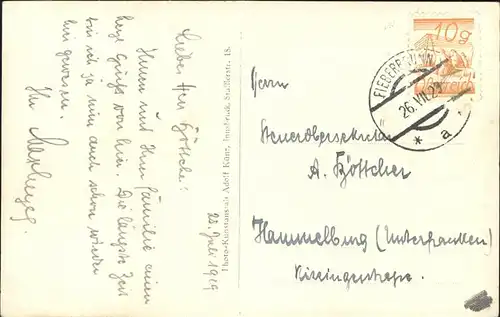 Lieber Herr Böttcher!
Ihnen und Ihrer Familie einen
Gruß von hier. Die längste Zeit
bin ich ja nun auch schon wieder
hier gewesen.
Ihr
25. Juli 1929
Photo-Kunstverlag Adolf Künz, Innsbruck, 18.
10g
FIEBERBRUNN
26.VII.29
* a
Herrn
Steuerobersekretär
A. Böttcher
Hammelburg (Unterfranken)
Kissingerstraße.